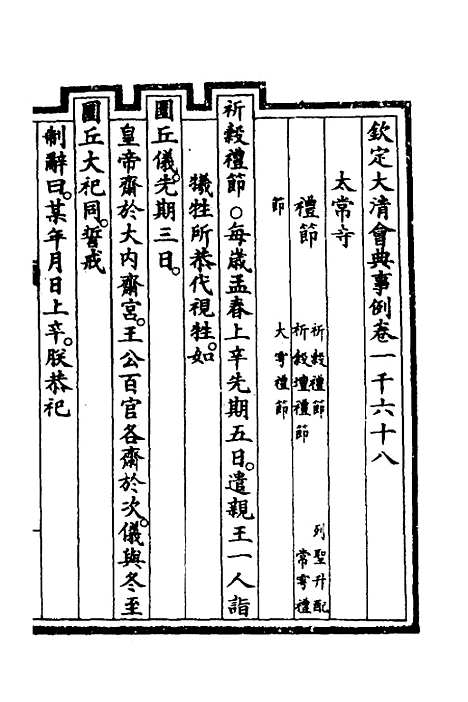 欽定大清會典事例卷一千六十八
太常寺
禮節
祈穀禮節
列聖升配
祈穀壇禮節
常雩禮
節
大雩禮節
祈穀禮節○每歲孟春上辛先期五日。遣親王一人詣
犧牲所恭代視牲。如
圜丘儀。先期三日。
皇帝齋於大內齋宮。王公百官各齋於次。儀與冬至
圜丘大祀同。誓戒
制辭曰。某年月日上辛。朕恭祀